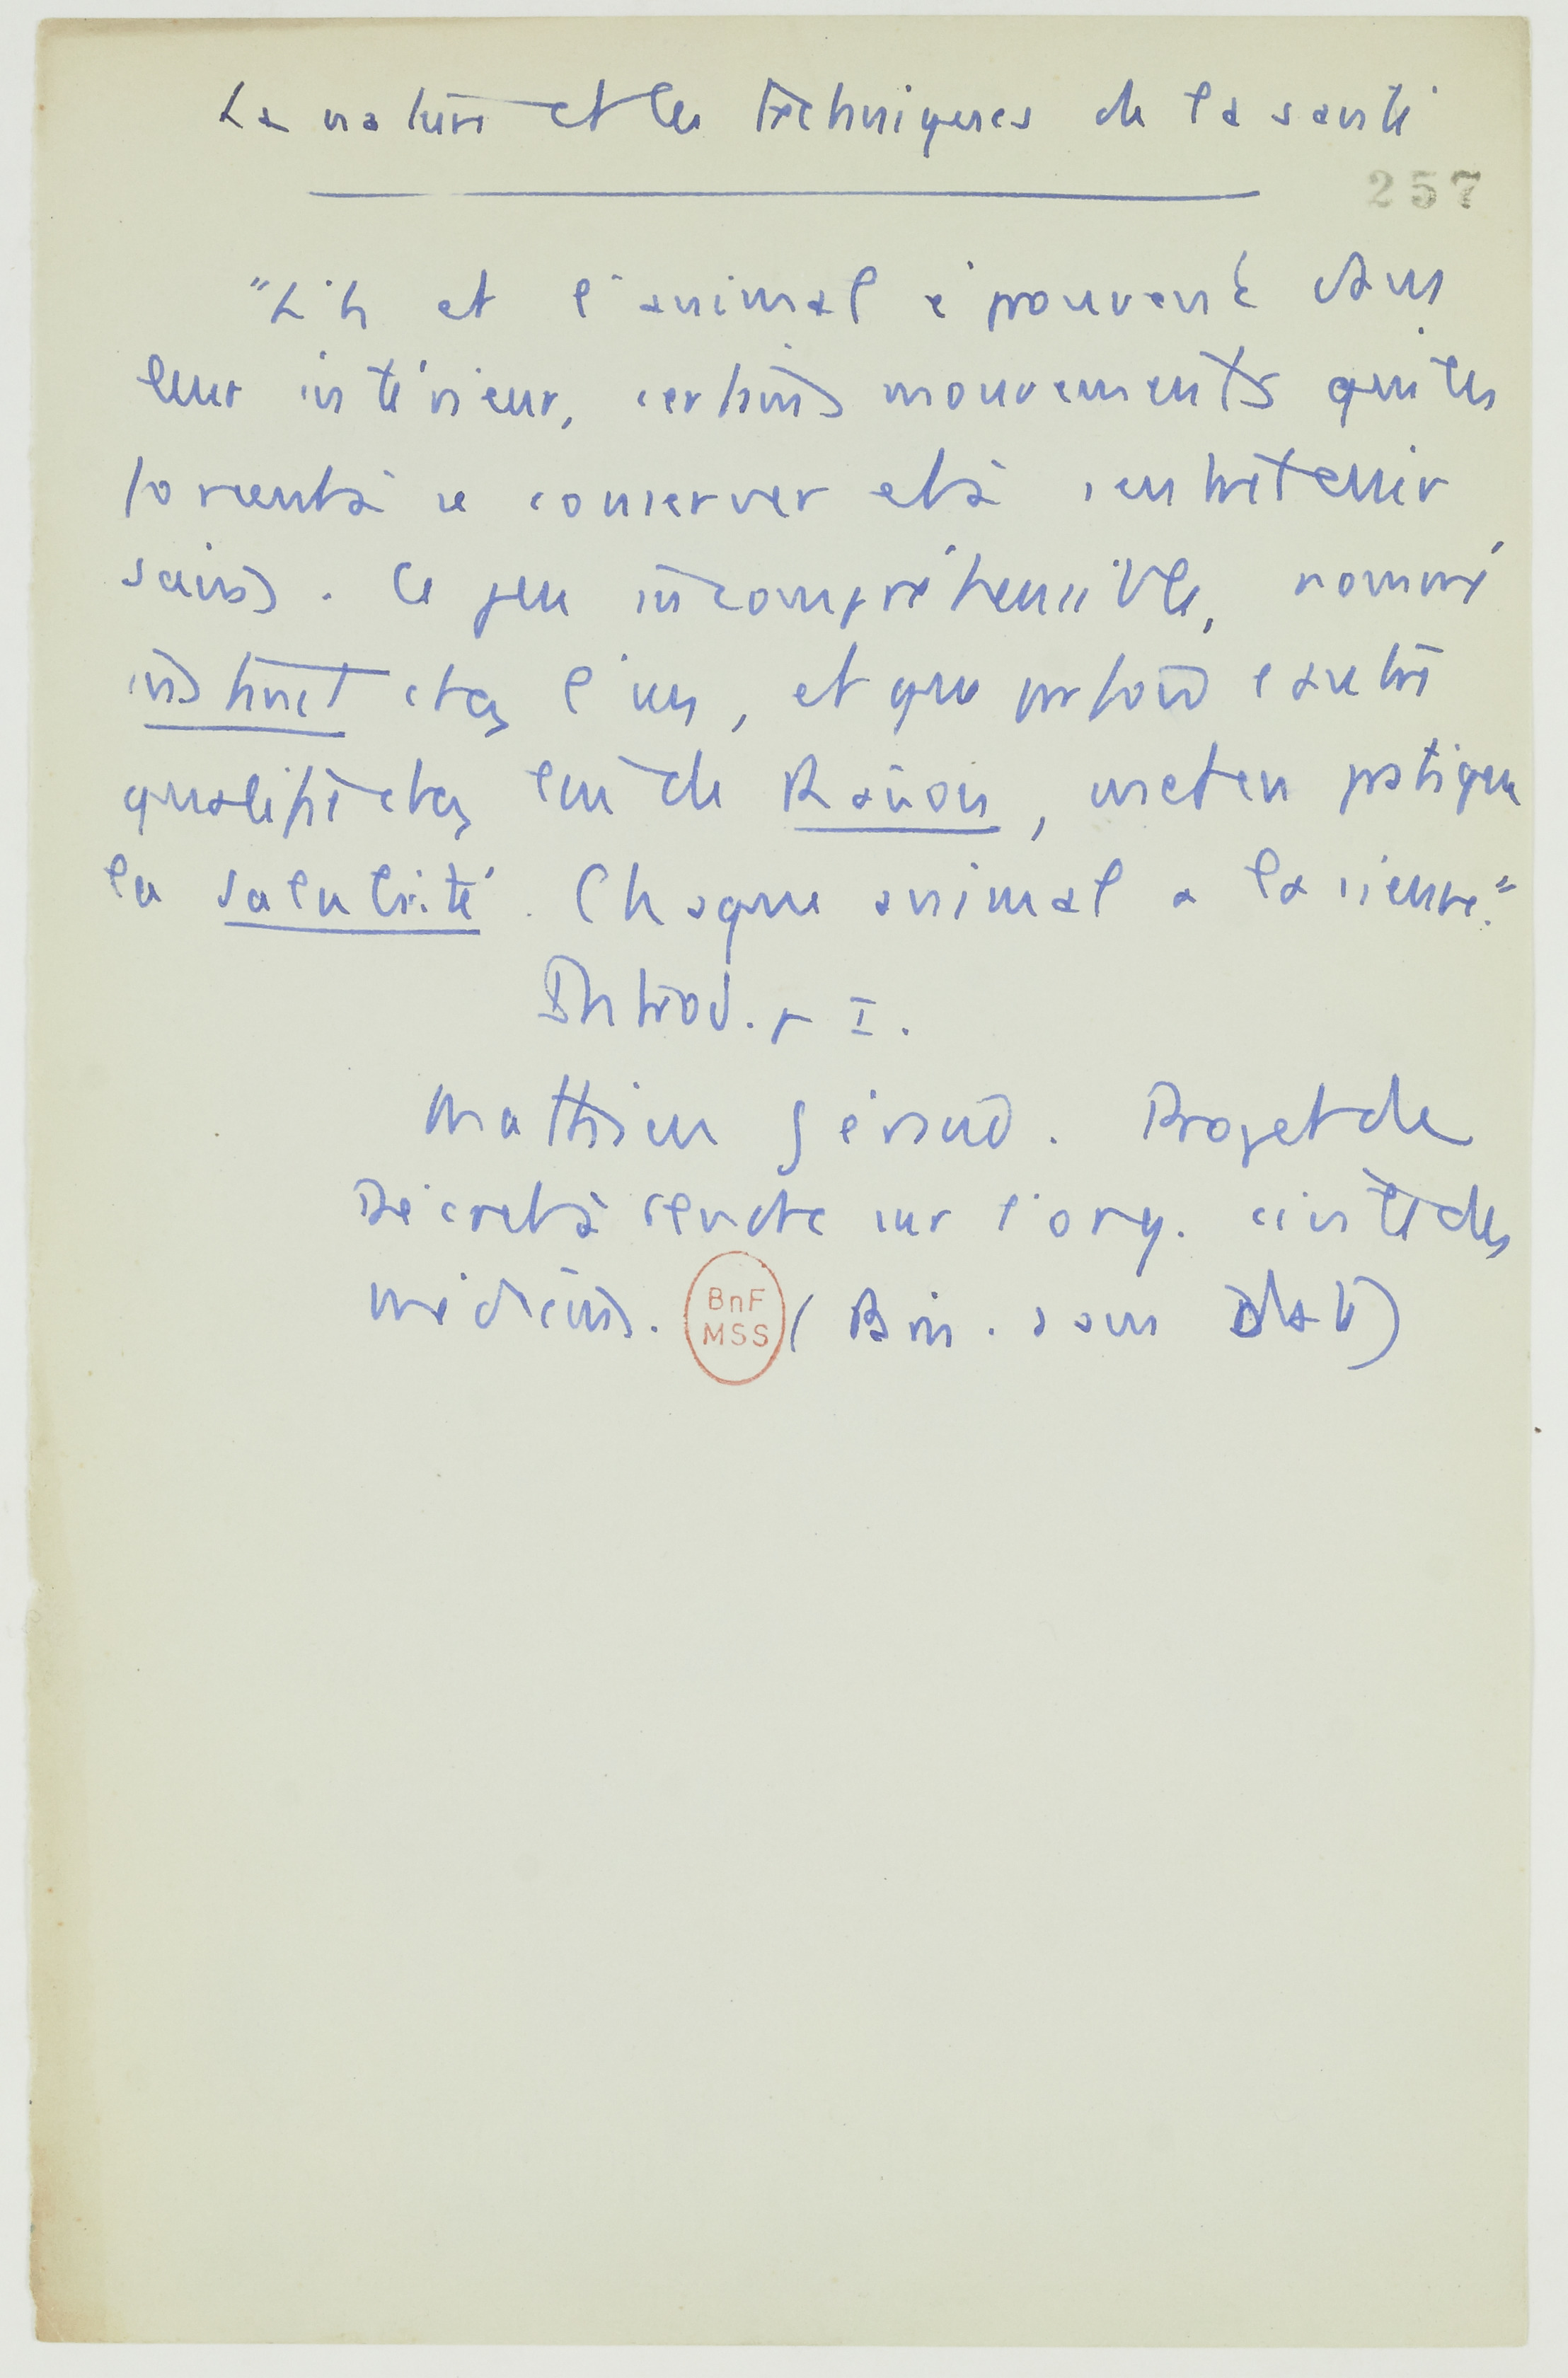 La nature et les techniques de la santé
257
"L'h et l'animal éprouvent dans
leur intérieur, certains mouvements qui les
forcent à se conserver et à s'entretenir
sains. Ce jeu incompréhensible, nommé
instinct chez l'un, et que l'autre
qualifie chez lui de Raison, met en pratique
la salubrité. Chaque animal a la sienne."
Introd. p I.
Mathieu Géraud. Projet de
Décret à rendre sur l'org. civile des
médecins. (Bin. sans Date)
BnF
MSS